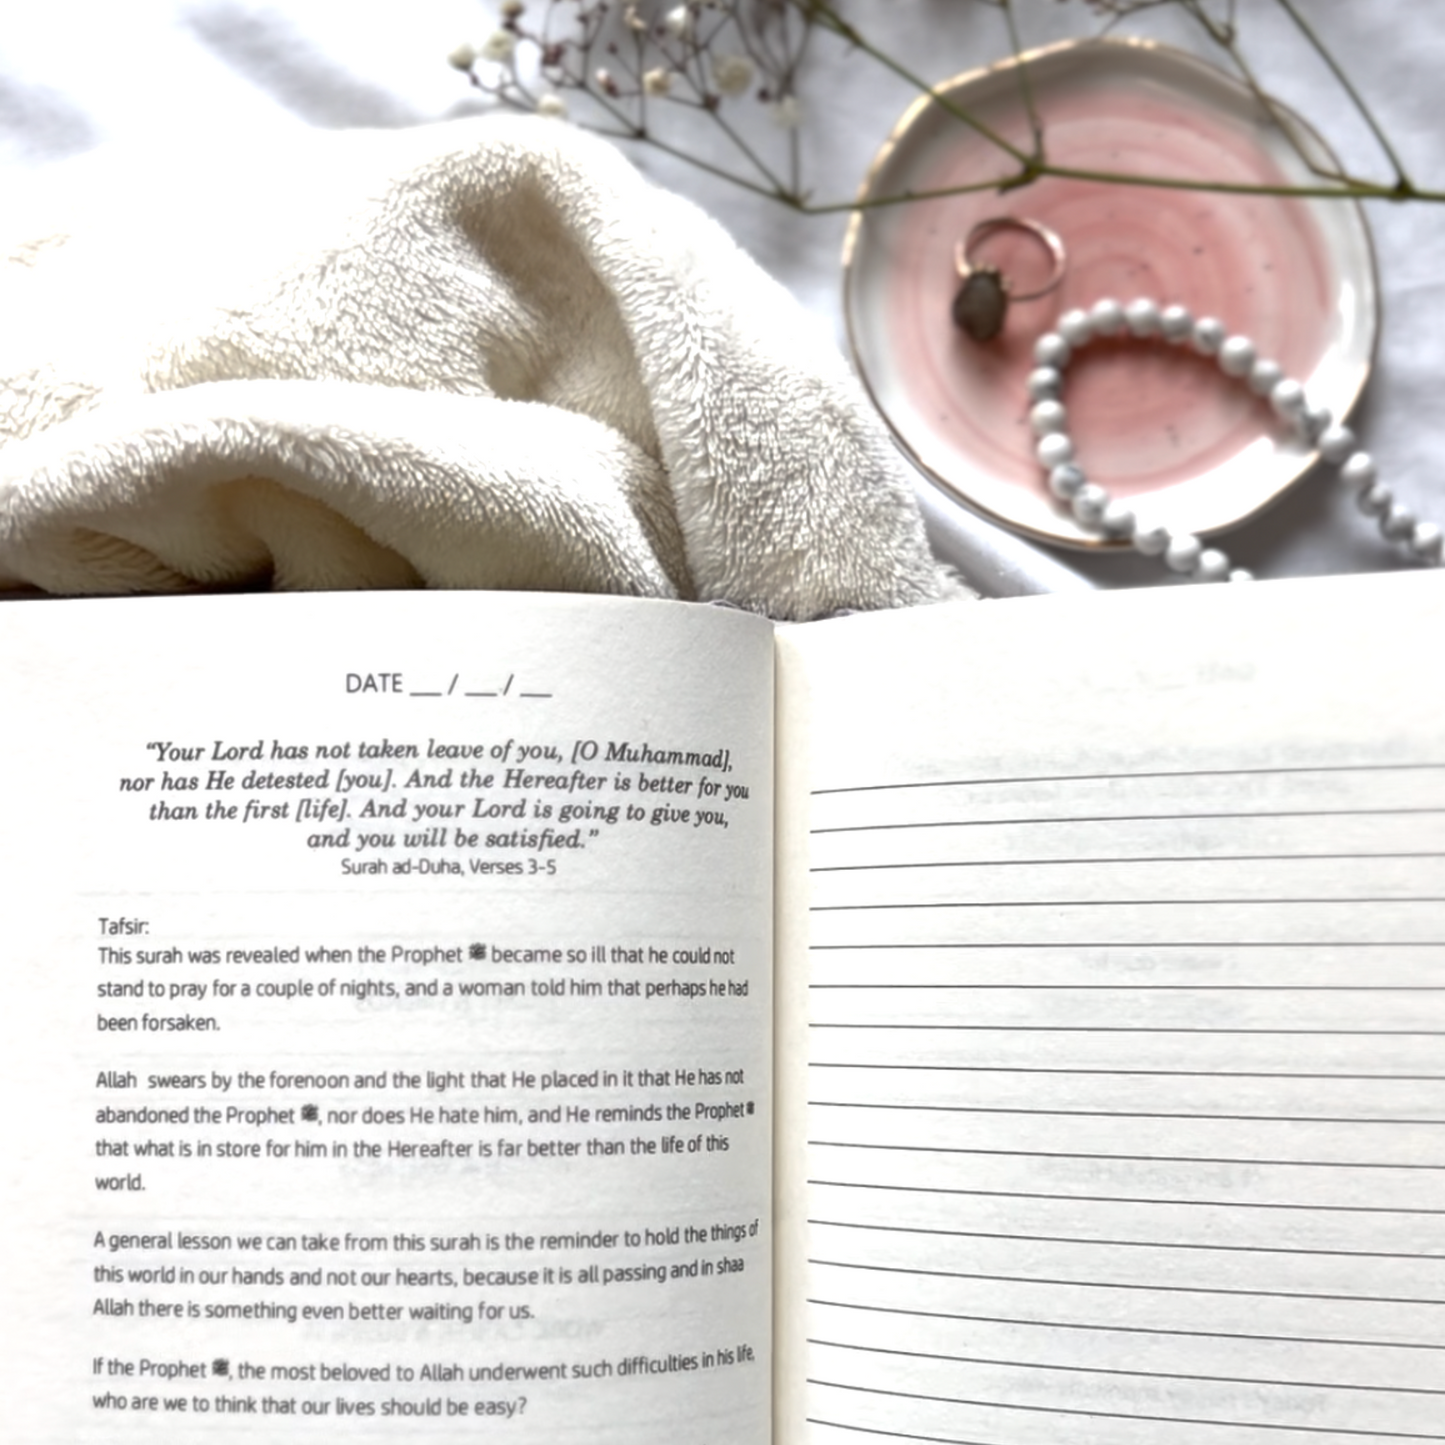 DATE __ / __ / __
“Your Lord has not taken leave of you, [O Muhammad],
nor has He detested [you]. And the Hereafter is better for you
than the first [life]. And your Lord is going to give you,
and you will be satisfied.”
Surah ad-Duha, Verses 3-5
Tafsir:
This surah was revealed when the Prophet ﷺ became so ill that he could not
stand to pray for a couple of nights, and a woman told him that perhaps he had
been forsaken.
Allah swears by the forenoon and the light that He placed in it that He has not
abandoned the Prophet ﷺ, nor does He hate him, and He reminds the Prophet ﷺ
that what is in store for him in the Hereafter is far better than the life of this
world.
A general lesson we can take from this surah is the reminder to hold the things of
this world in our hands and not our hearts, because it is all passing and in shaa
Allah there is something even better waiting for us.
If the Prophet ﷺ, the most beloved to Allah underwent such difficulties in his life,
who are we to think that our lives should be easy?